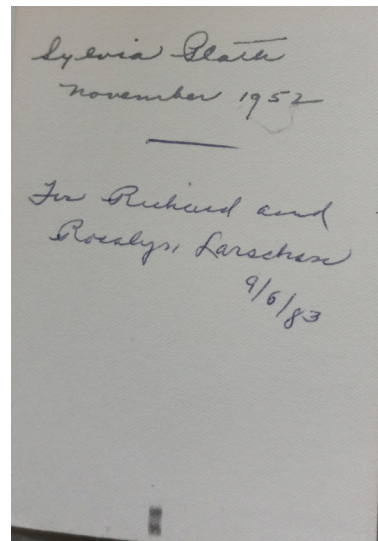 Sylvia Plath
November 1952
For Richard and
Rosalyn Larschan
9/6/83